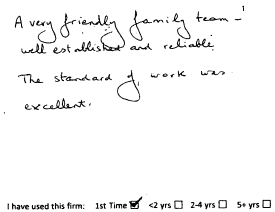 A very friendly family team -
well established and reliable.
The standard of work was
excellent.
I have used this firm: 1st Time ☑ <2 yrs ☐ 2-4 yrs ☐ 5+ yrs ☐